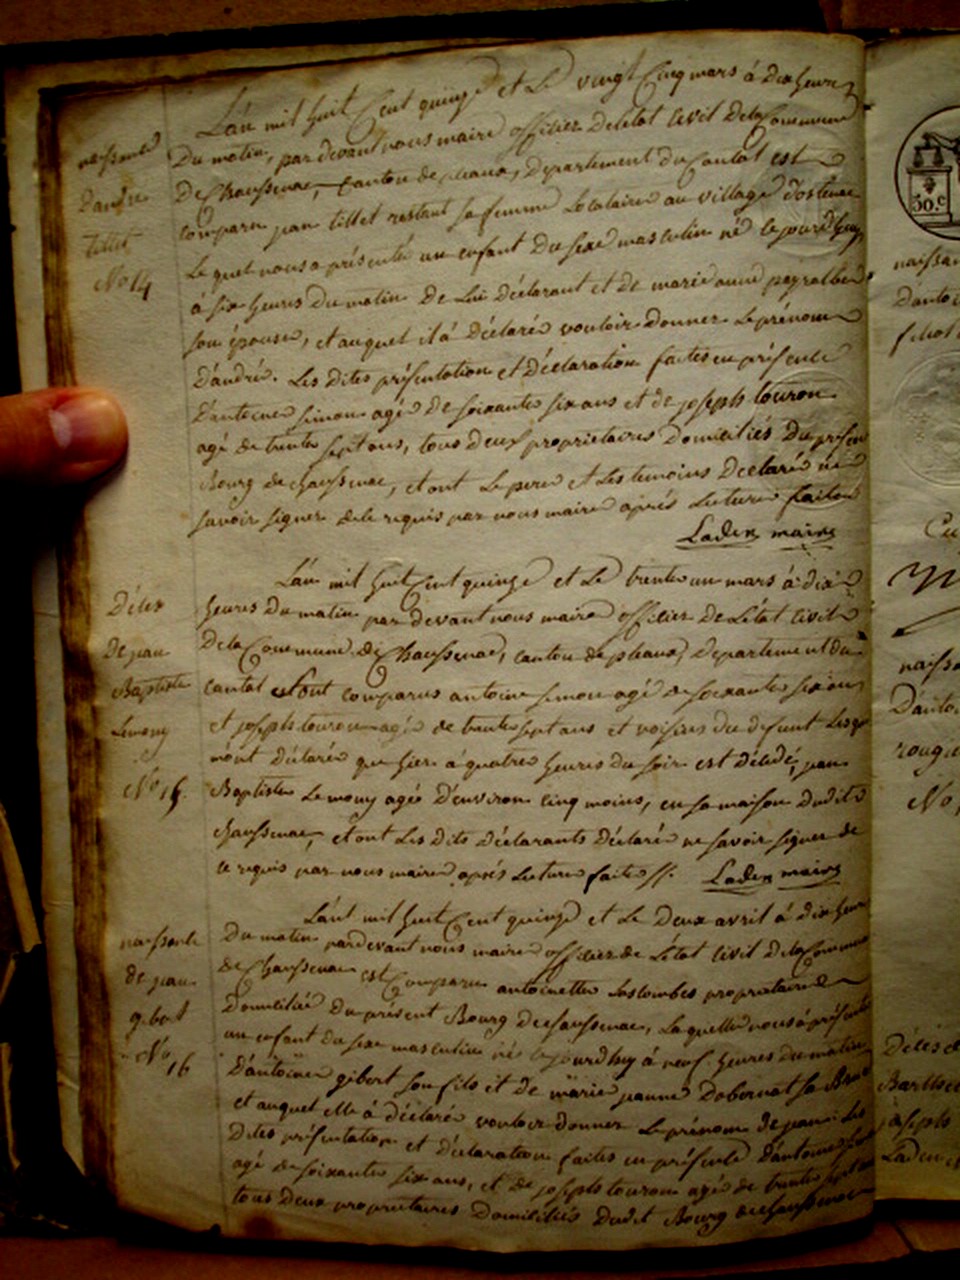 L'an mil huit Cent quinze et Le vingt Cinq mars à dix heures
naissance
Du matin, par devant nous maire officier De letat Civil De la Commune
D'andré
De Chaussenac, Canton de pleaux, Departement du Cantal est
tillet
comparu jean tillet restant sa femme Locataire au village
No 14
Le quel nous a présenté un enfant Du sexe masculin né le jourd'huy
à six heures Du matin De Lui Déclarant et de marie anne peyralbe
son épouse, et auquel il à Déclaré vouloir donner Le prénom
D'andré. Les Dites présentation et Déclaration faites en présence
D'antoine simon agé De soixante six ans et de joseph touron
agé de trente sept ans, tous Deux proprietaires Domiciliés Du présent
Bourg de chaussenac, et ont Le pere et Les temoins Declaré ne
savoir signer de le requis par nous maire aprés Lecture faite
Laden maire
L'an mil huit Cent quinze et Le trente un mars à dix
Décès
heures Du matin par devant nous maire officier De Létat Civil
De jean
De la Commune De Chaussenac, canton de pleaux, Departement du
Baptiste
Cantal sont comparus antoine simon agé de soixante six ans
Lemony
et joseph touron agé de trente sept ans et voisins du defunt Lesquels
m'ont déclaré que hier à quatre heures du soir est décédé, jean
No 15
Baptiste Lemony agé D'environ Cinq mois, en sa maison dudit
chaussenac, et ont Les Dits Déclarants Déclaré ne savoir signer de
le requis par nous maire aprés Lecture faite //. Laden maire
L'an mil huit Cent quinze et Le Deux avril à dix heures
naissance
Du matin pardevant nous maire officier de Létat Civil De la Commune
de jean
de Chaussenac est Comparu antoinette Lascombes proprietaire
gibert
Domiciliée Du présent Bourg de chaussenac, Laquelle nous à présenté
No 16
un enfant Du sexe masculin né le jourdhuy à neuf heures Du matin
D'antoine gibert son fils et de marie jeanne Dabernat sa Bru
et auquel elle à déclaré vouloir donner Le prénom De jean. Les
Dites présentation et déclaration faites en présence D'antoine simon
agé de soixante six ans, et de joseph touron agé de trente sept ans
tous Deux proprietaires Domiciliés Dudit Bourg de chaussenac
50.c
naissa
D'anto
naissa
D'anto
rougi
No
Décès d
Barthe
joseph
Laden